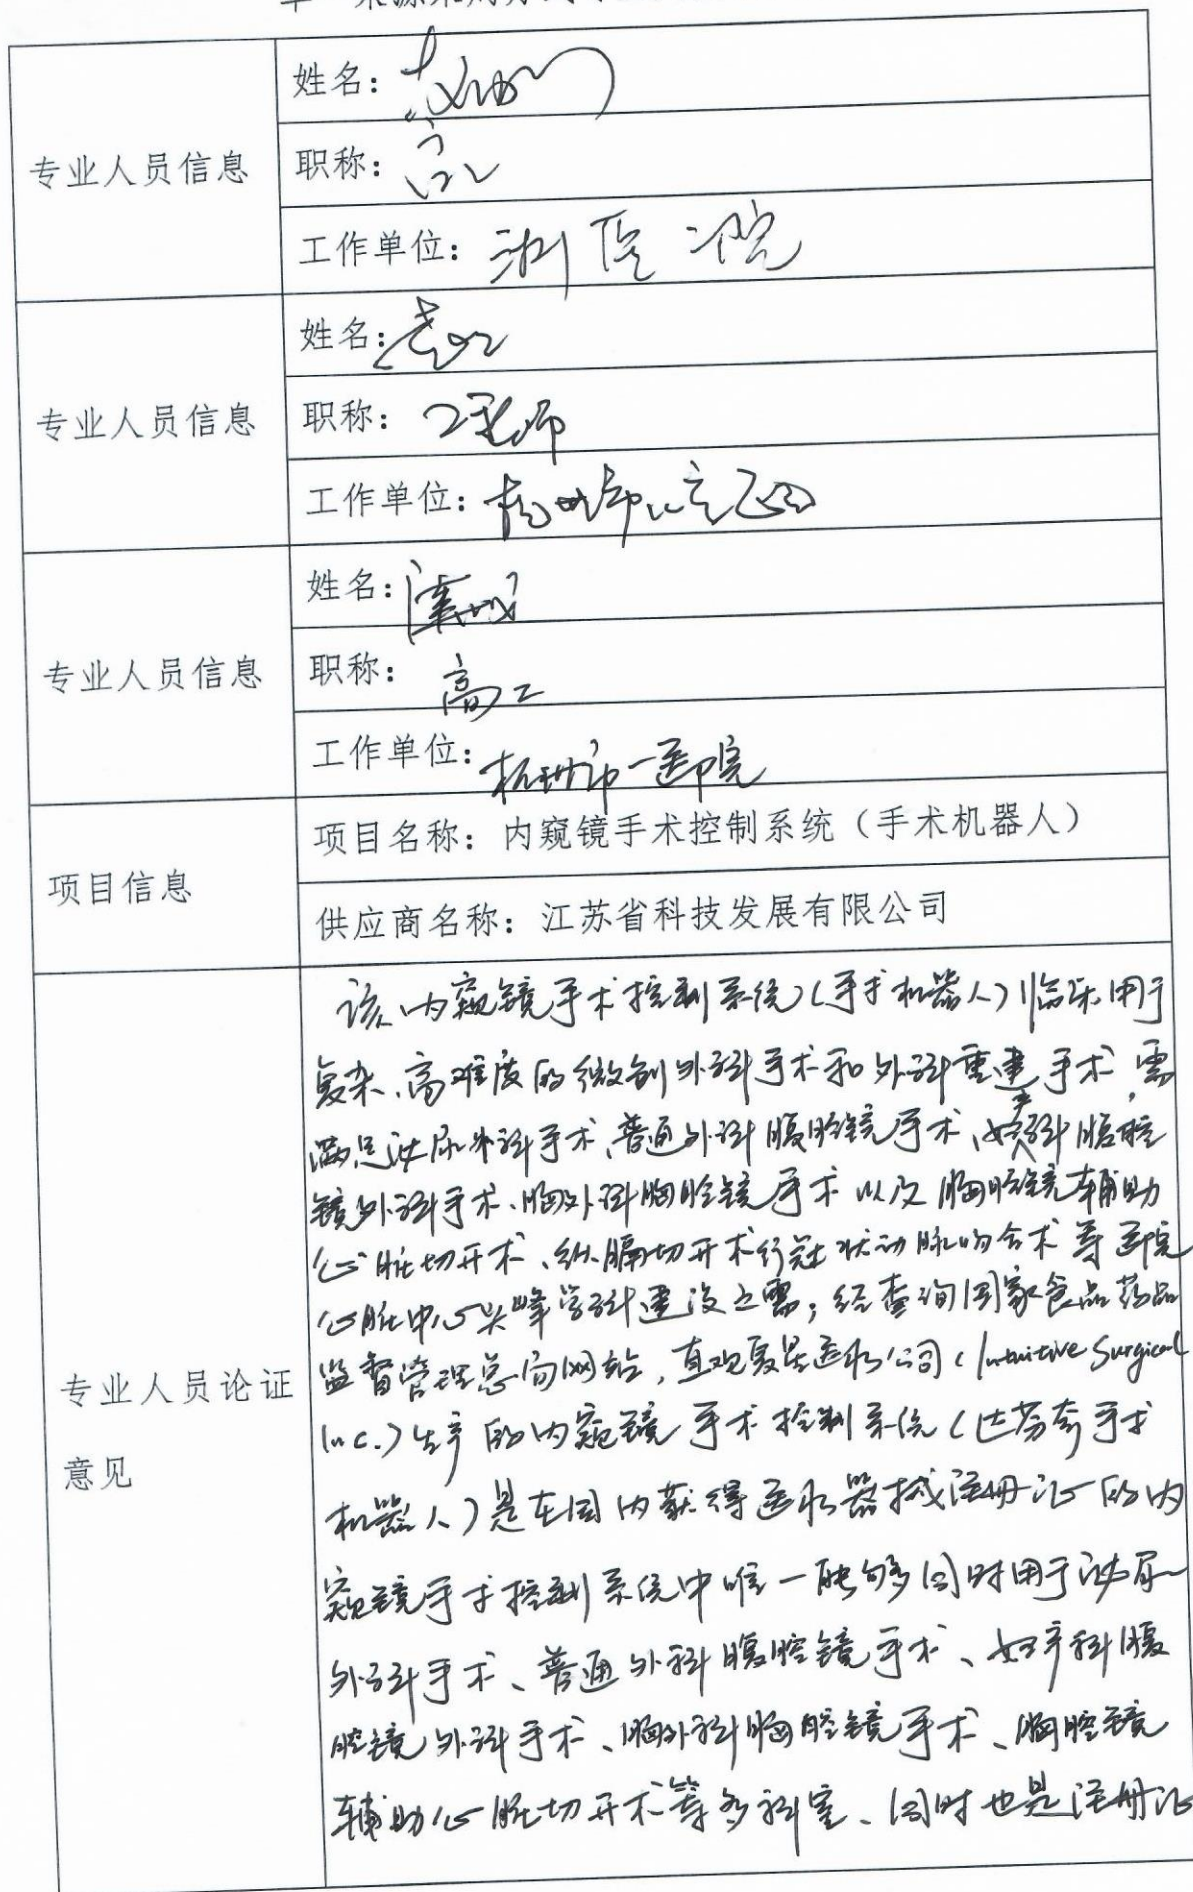 姓名：
专业人员信息
职称：高工
工作单位：浙医二院
姓名：
专业人员信息
职称：工程师
工作单位：杭州市
姓名：
专业人员信息
职称：高工
工作单位：杭州市一医院
项目信息
项目名称：内窥镜手术控制系统（手术机器人）
供应商名称：江苏省科技发展有限公司
专业人员论证意见
该内窥镜手术控制系统（手术机器人）临床用于
复杂、高难度的微创外科手术和外科重建手术，需
满足泌尿外科手术、普通外科腹腔镜手术、妇产科腹腔
镜外科手术、胸外科胸腔镜手术以及胸腔镜辅助
心脏切开术、纵膈切开术行冠状动脉吻合术等医院
心脏中心尖峰学科建设之需；经查询国家食品药品
监督管理总局网站，直观复星医疗公司（Intuitive Surgical
Inc.）生产的内窥镜手术控制系统（达芬奇手术
机器人）是在国内获得医疗器械注册证的内
窥镜手术控制系统中唯一能够同时用于泌尿
外科手术、普通外科腹腔镜手术、妇产科腹
腔镜外科手术、胸外科胸腔镜手术、胸腔镜
辅助心脏切开术等多科室、同时也是注册证